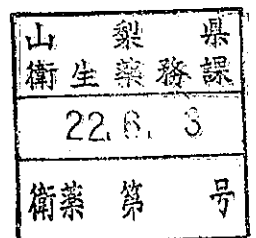 山梨県
衛生薬務課
22.6.3
衛薬第　号